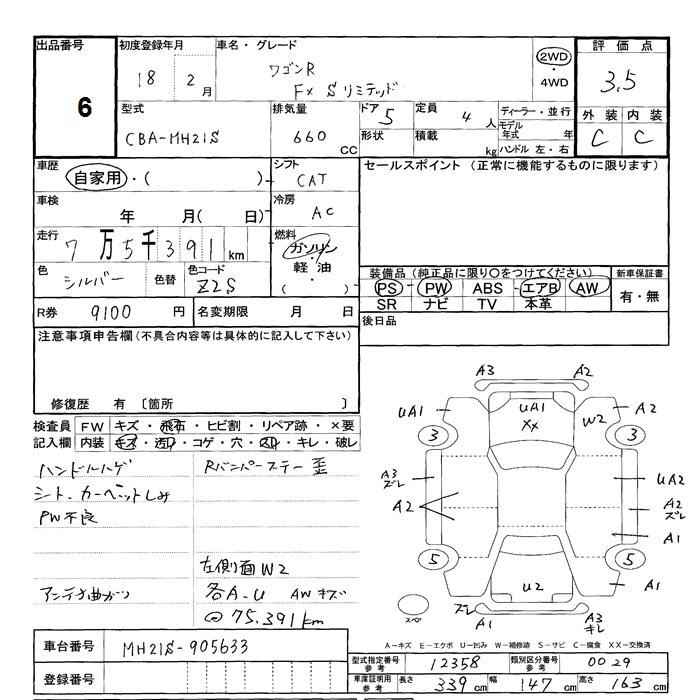 出品番号
6
初度登録年月
18 2月
車名・グレード
ワゴンR
FX Sリミテッド
2WD
・
4WD
評価点
3.5
外装 内装
C C
型式
CBA-MH21S
排気量
660
CC
ドア
5
形状
定員
4人
積載
kg
ディーラー・並行
モデル年式 年
ハンドル 左・右
車歴
自家用・( )
シフト
CAT
セールスポイント (正常に機能するものに限ります)
車検
年 月( 日)
冷房
AC
走行
7万5千391km
燃料
ガソリン
軽・油
( )
色
シルバー
色替
色コード
Z2S
装備品 (純正品に限り○をつけてください)
PS・PW・ABS・エアB・AW
SR ナビ TV 本革
新車保証書
有・無
R券 9100 円
名変期限 月 日
後日品
注意事項申告欄(不具合内容等は具体的に記入して下さい)
修復歴 有 〔箇所 〕
検査員 FW キズ・飛石・ヒビ割・リペア跡・×要
記入欄 内装 キズ・汚れ・コゲ・穴・スレ・キレ・破レ
ハンドルハゲ
シート、カーペットしみ
PW不良
アンテナ曲がり
Rバンパーステー歪
左側面W2
各A-U AWキズ
@75.391km
A3
A2
UA1
UA1
XX
W2
A2
3
3
A3
ズレ
A2
UA2
A2
ズレ
A1
5
5
U2
A1
スペ
ズレ
A1
A3
キレ
A－キズ E－エクボ U－凹み W－補修跡 S－サビ C－腐食 XX－交換済
車台番号 MH21S-905633
登録番号
型式指定番号 参考 12358
類別区分番号 参考 0029
車庫証明用 参考 長さ 339cm 幅 147cm 高さ 163cm